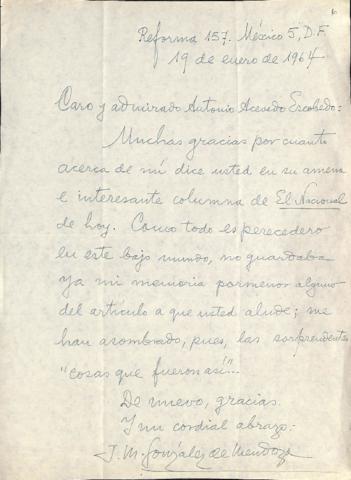 6
Reforma 157. México 5, D.F.
19 de enero de 1964
Caro y admirado Antonio Acevedo Escobedo:
Muchas gracias por cuanto
acerca de mí dice usted en su amena
e interesante columna de El Nacional
de hoy. Como todo es perecedero
en este bajo mundo, no guardaba
ya mi memoria pormenor alguno
del artículo a que usted alude; me
han asombrado, pues, las sorprendentes
"cosas que fueron así"...
De nuevo, gracias.
Y un cordial abrazo:
J. M. González de Mendoza